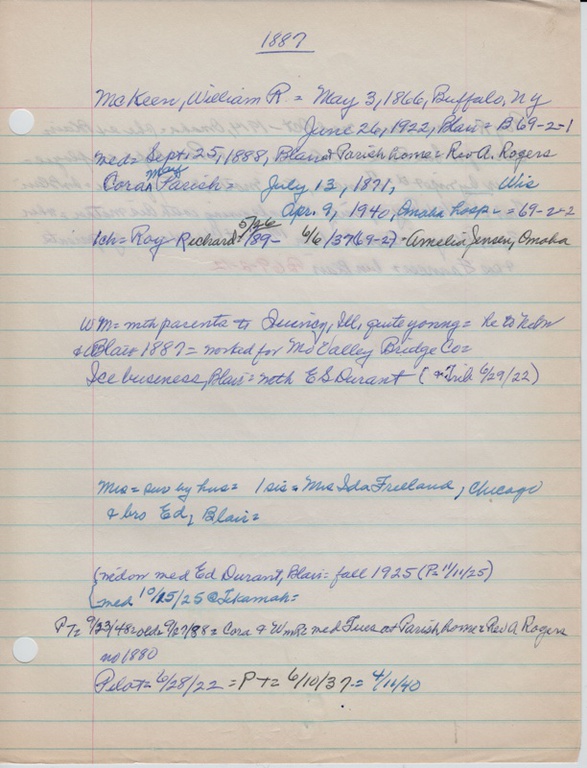 1887
McKeen, William R. = May 3, 1866, Buffalo, Ny
June 26, 1922, Blair = B 69-2-1
med = Sept. 25, 1888, Blair at Parish home = Rev A. Rogers
Cora May Parish = July 13, 1871, Wis
Apr. 9, 1940, Omaha hosp = 69-2-2
1 ch = Roy Richard = 5/26/89 - 6/6/37 (69-2) - Amelia Jensen, Omaha
Wm = with parents to Quincy, Ill, quite young = he to Nebr
& Blair 1887 = worked for Mo Valley Bridge Co =
Ice business, Blair = with E S Durant ( Trib 6/29/22)
Mrs = surv by hus = 1 sis = Mrs Ida Freeland, Chicago
& bro Ed, Blair =
(widow med Ed Durant, Blair = fall 1925 (P = 11/11/25)
med 10/15/25 @ Tekamah =
PT = 9/23/48 = old = 9/27/88 = Cora & Wm R = med Tues at Parish home = Rev A Rogers
no 1880
Pilot = 6/28/22 = PT = 6/10/37 = 4/11/40